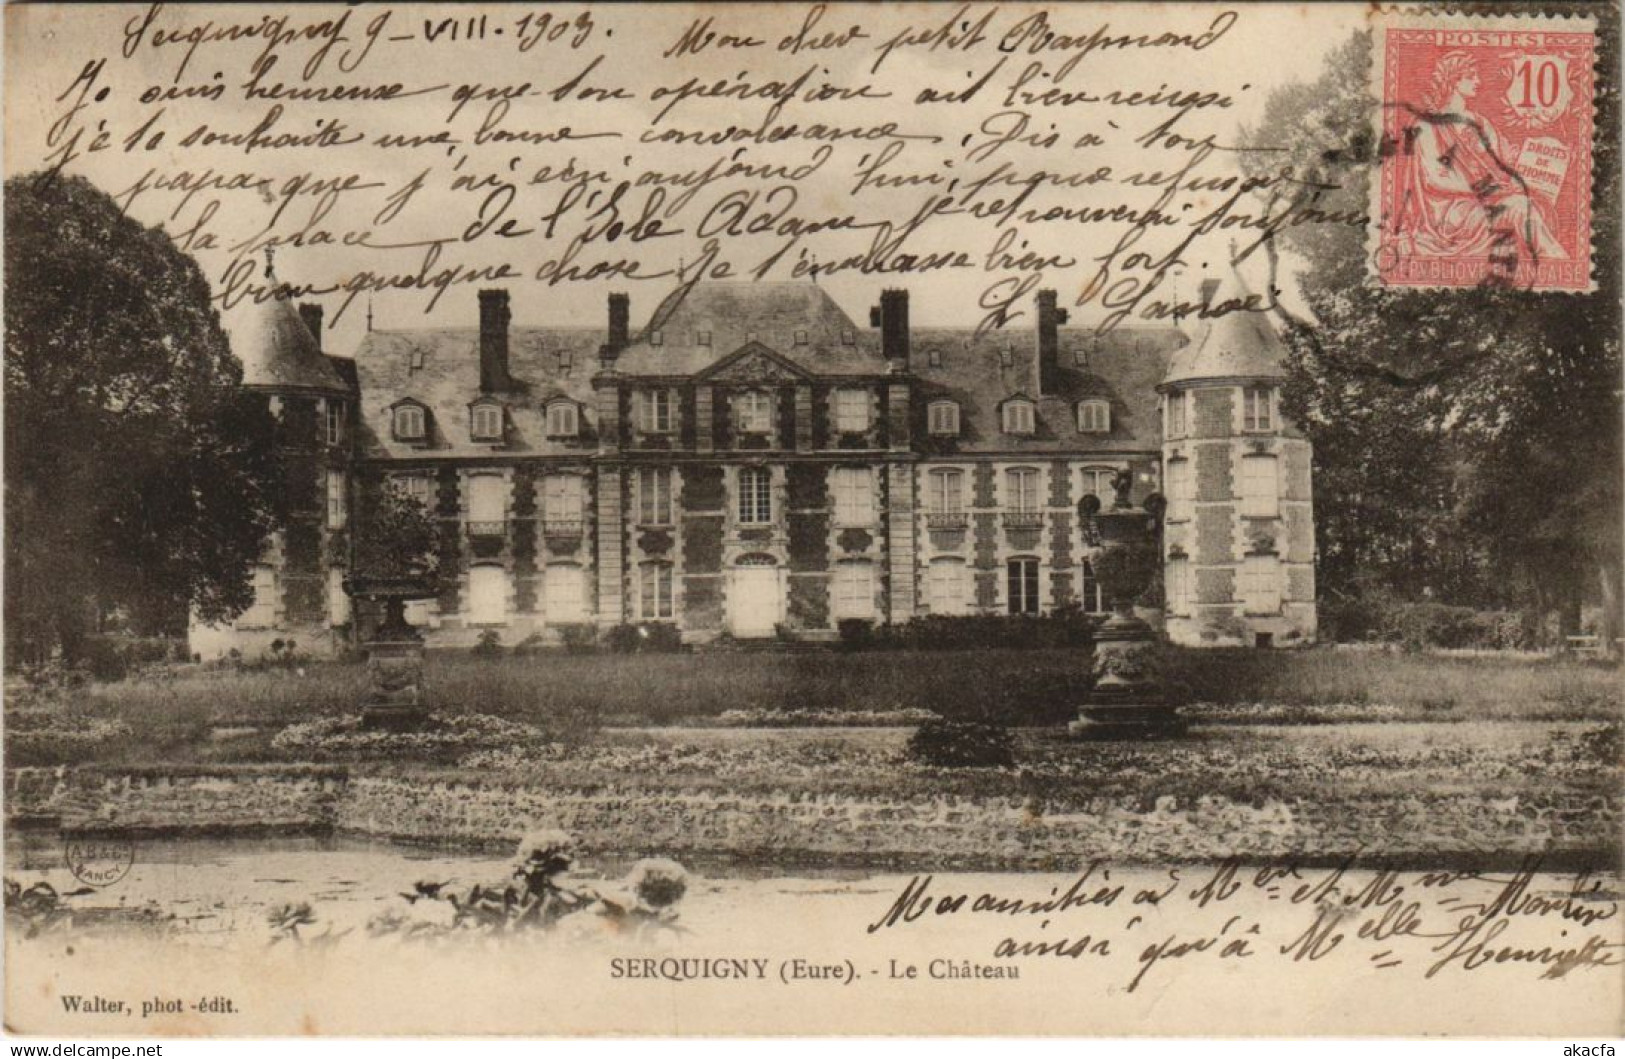 Serquigny 9 - VIII. 1903.
Mon cher petit Raymond
Je suis heureuse que ton opération ait bien reussi
je te souhaite une bonne convalesance. Dis à ton
papa que j'ai écri aujourd'hui, pour refuser
la place de l'Isle Adam, je retrouverai toujours
bien quelque chose Je t'embrasse bien fort.
POSTES
10
DROITS DE L'HOMME
REPUBLIQUE FRANÇAISE
A.B & Cie
NANCY
Mes amitiés à Mer et Mme Moulin
ainsi qu'à Melle Henriette
SERQUIGNY (Eure). - Le Château
Walter, phot -édit.
akacfa